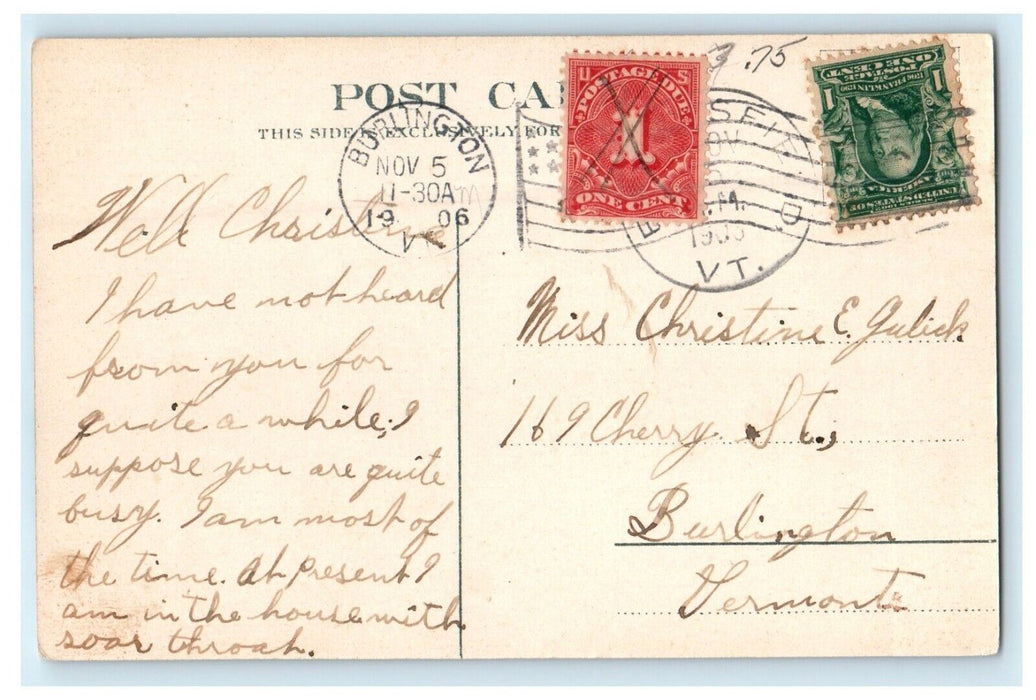 POST CA
THIS SIDE IS EXCLUSIVELY FOR
BURLINGTON
NOV 5
11-30AM
1906
VT
U S
POSTAGE DUE
1
ONE CENT
.75
ONE CENT
POSTAGE
FRANKLIN
1 1
UNITED STATES OF
AMERICA
NOV
M.
VT.
Well Christine
I have not heard
from you for
quite a while; I
suppose you are quite
busy. I am most of
the time. At present I
am in the house with
soar throah.
Miss Christine E. Gulick
169 Cherry St.,
Burlington
Vermont